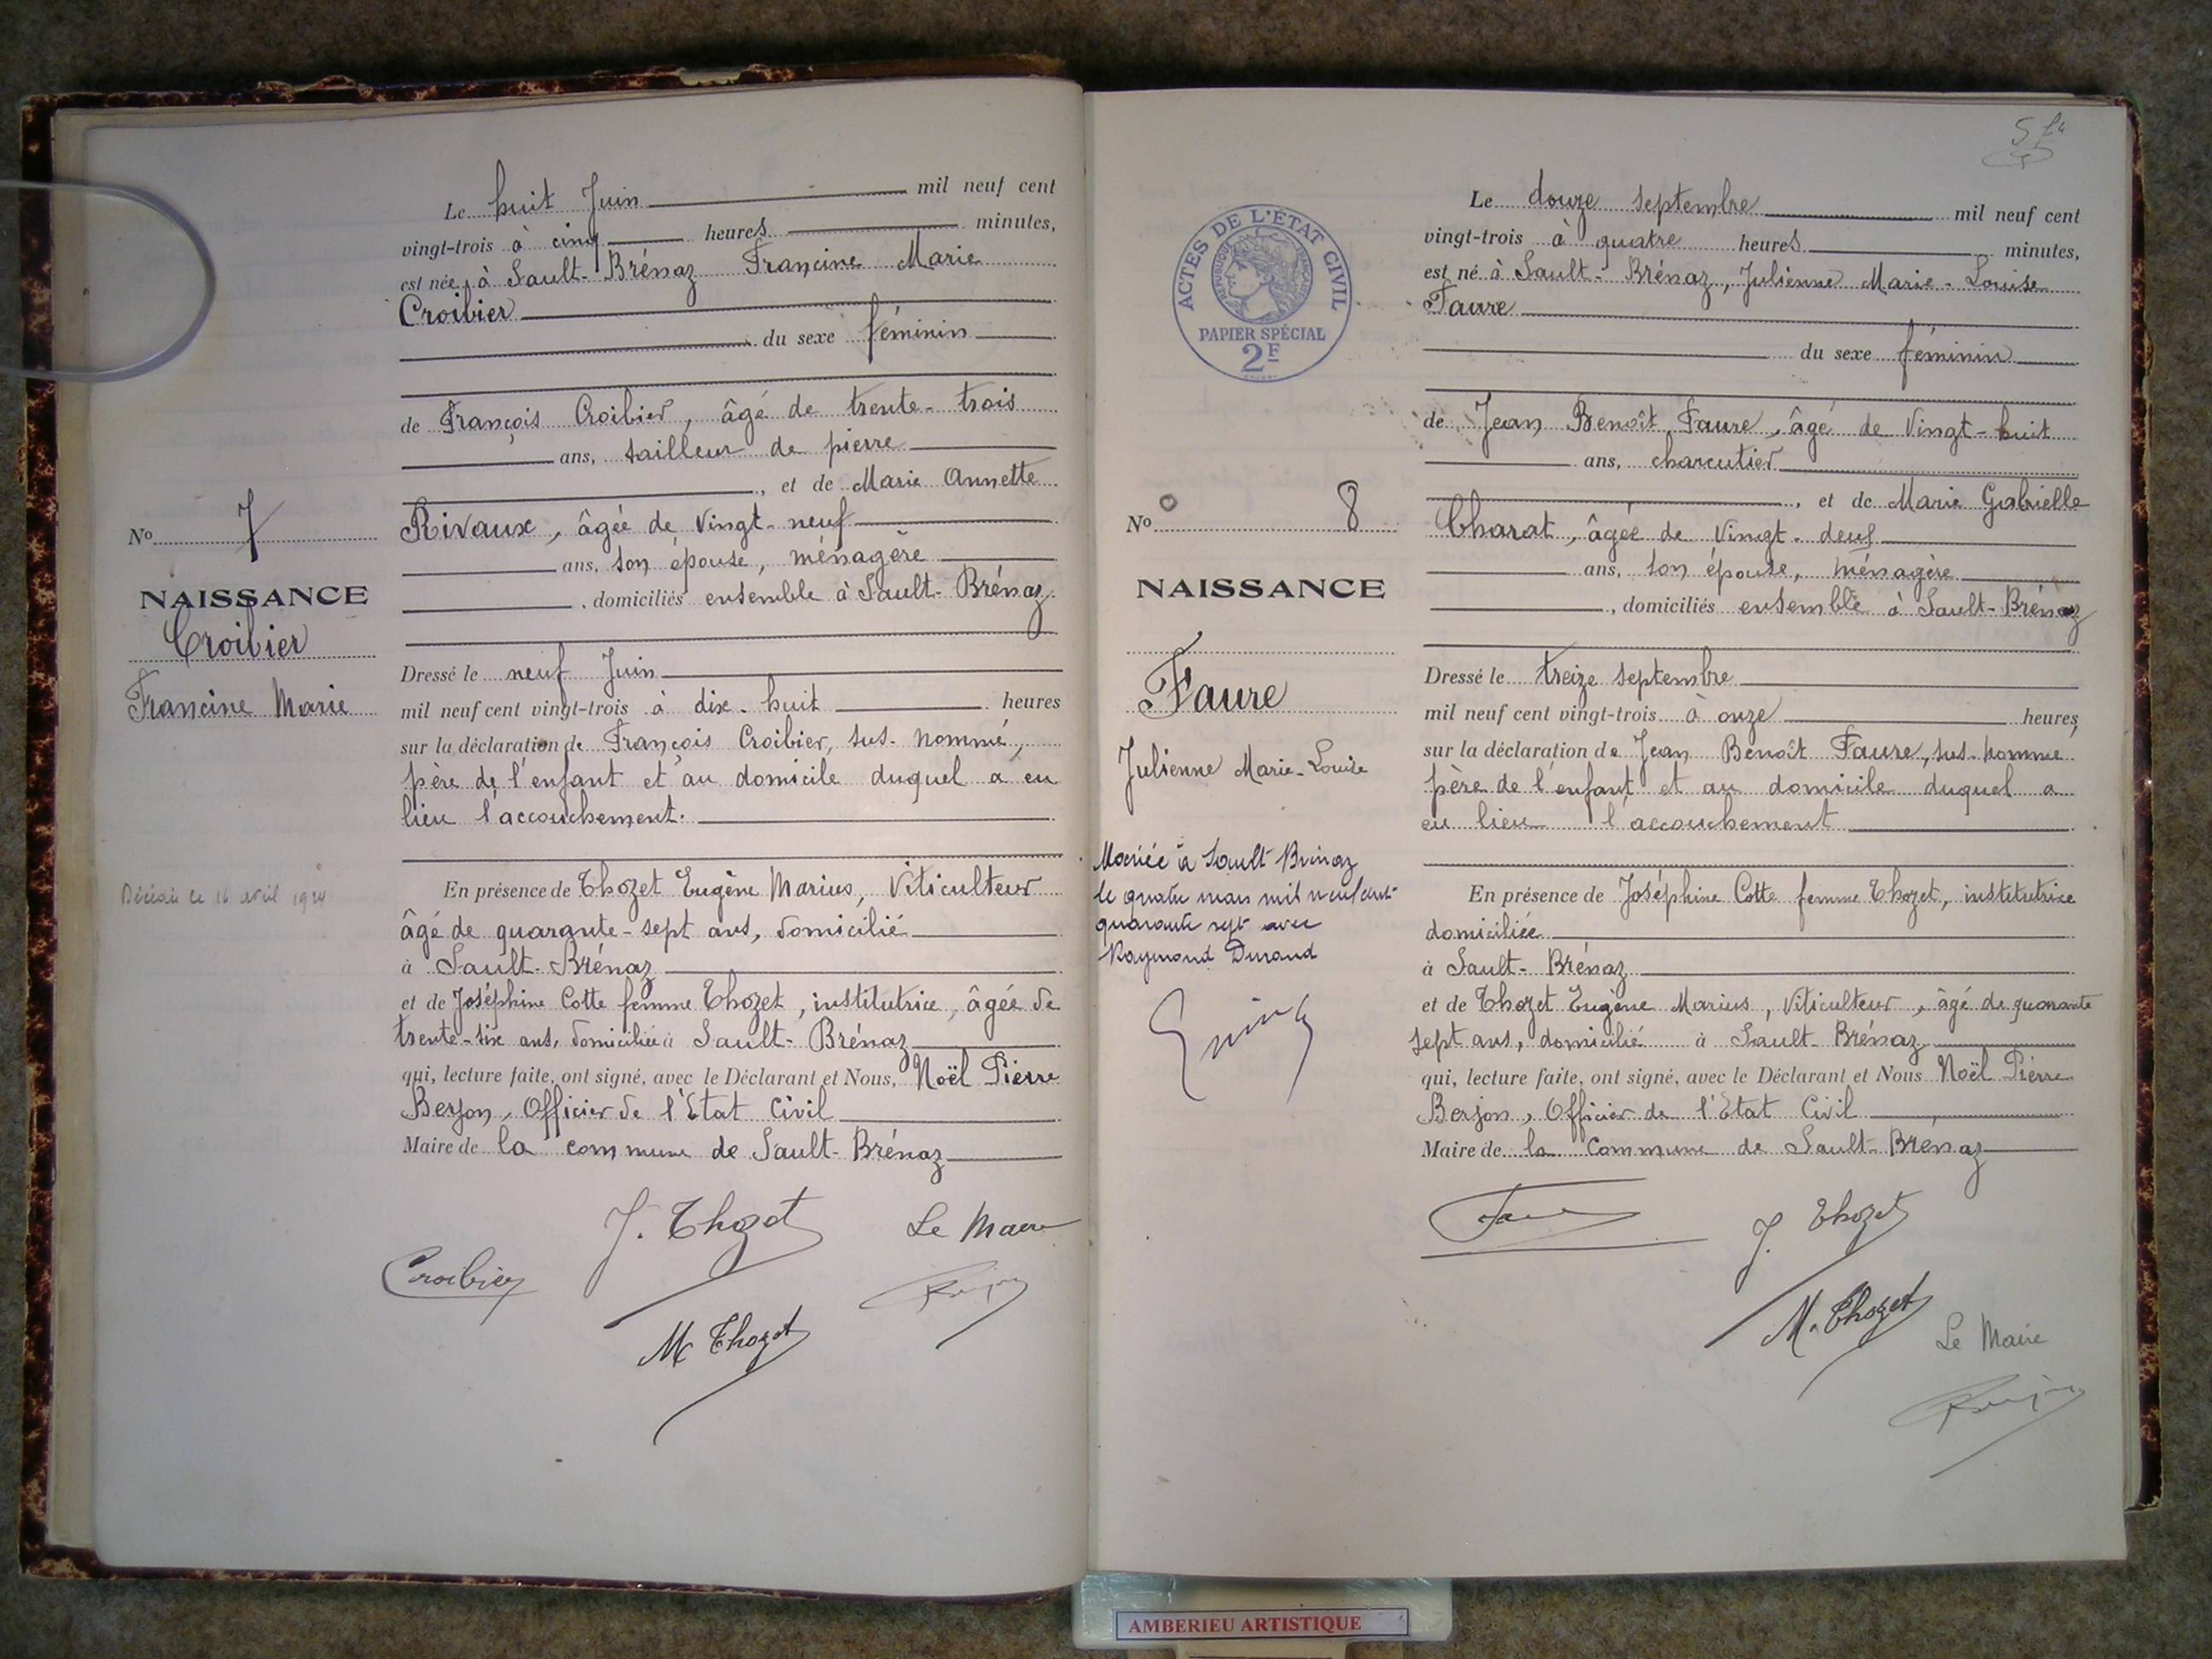 Le huit Juin mil neuf cent
vingt-trois à cinq heures minutes,
est née à Sault-Brénaz Francine Marie
Croibier
du sexe féminin
de François Croibier, âgé de trente-trois
ans, tailleur de pierre
, et de Marie Annette
Rivaux, âgée de vingt-neuf
ans, son épouse, ménagère
, domiciliés ensemble à Sault-Brénaz
No 7
NAISSANCE
Croibier
Francine Marie
Dressé le neuf Juin
mil neuf cent vingt-trois à dix-huit heures
sur la déclaration de François Croibier, sus-nommé,
père de l'enfant et au domicile duquel a eu
lieu l'accouchement.
Décédée le 16 avril
En présence de Thozet Eugène Marius, Viticulteur
âgé de quarante-sept ans, domicilié
à Sault-Brénaz
et de Joséphine Cotte femme Thozet, institutrice, âgée de
trente-six ans, domiciliée à Sault-Brénaz
qui, lecture faite, ont signé, avec le Déclarant et Nous, Noël Pierre
Berjon, Officier de l'Etat Civil
Maire de la commune de Sault-Brénaz
J. Thozet Le Maire
Croibier
M Thozet
ACTES DE L'ÉTAT CIVIL
RÉPUBLIQUE FRANÇAISE
PAPIER SPÉCIAL
2F
Le douze septembre mil neuf cent
vingt-trois à quatre heures minutes,
est né à Sault-Brénaz, Julienne Marie-Louise
Faure
du sexe féminin
de Jean Benoît Faure, âgé de Vingt-huit
ans, charcutier
, et de Marie Gabrielle
Charat, âgée de Vingt-deux
ans, son épouse, ménagère
, domiciliés ensemble à Sault-Brénaz
No 8
NAISSANCE
Faure
Julienne Marie-Louise
Mariée à Sault Brénaz
le quatre mars mil neuf cent
quarante sept avec
Raymond Durand
Dressé le treize septembre
mil neuf cent vingt-trois à onze heures,
sur la déclaration de Jean Benoît Faure, sus-nommé
père de l'enfant et au domicile duquel a
eu lieu l'accouchement
En présence de Joséphine Cotte femme Thozet, institutrice
domiciliée
à Sault-Brénaz
et de Thozet Eugène Marius, Viticulteur, âgé de quarante
sept ans, domicilié à Sault-Brénaz
qui, lecture faite, ont signé, avec le Déclarant et Nous Noël Pierre
Berjon, Officier de l'Etat Civil
Maire de la Commune de Sault-Brénaz
Faure
J. Thozet
M. Thozet
Le Maire
AMBERIEU ARTISTIQUE